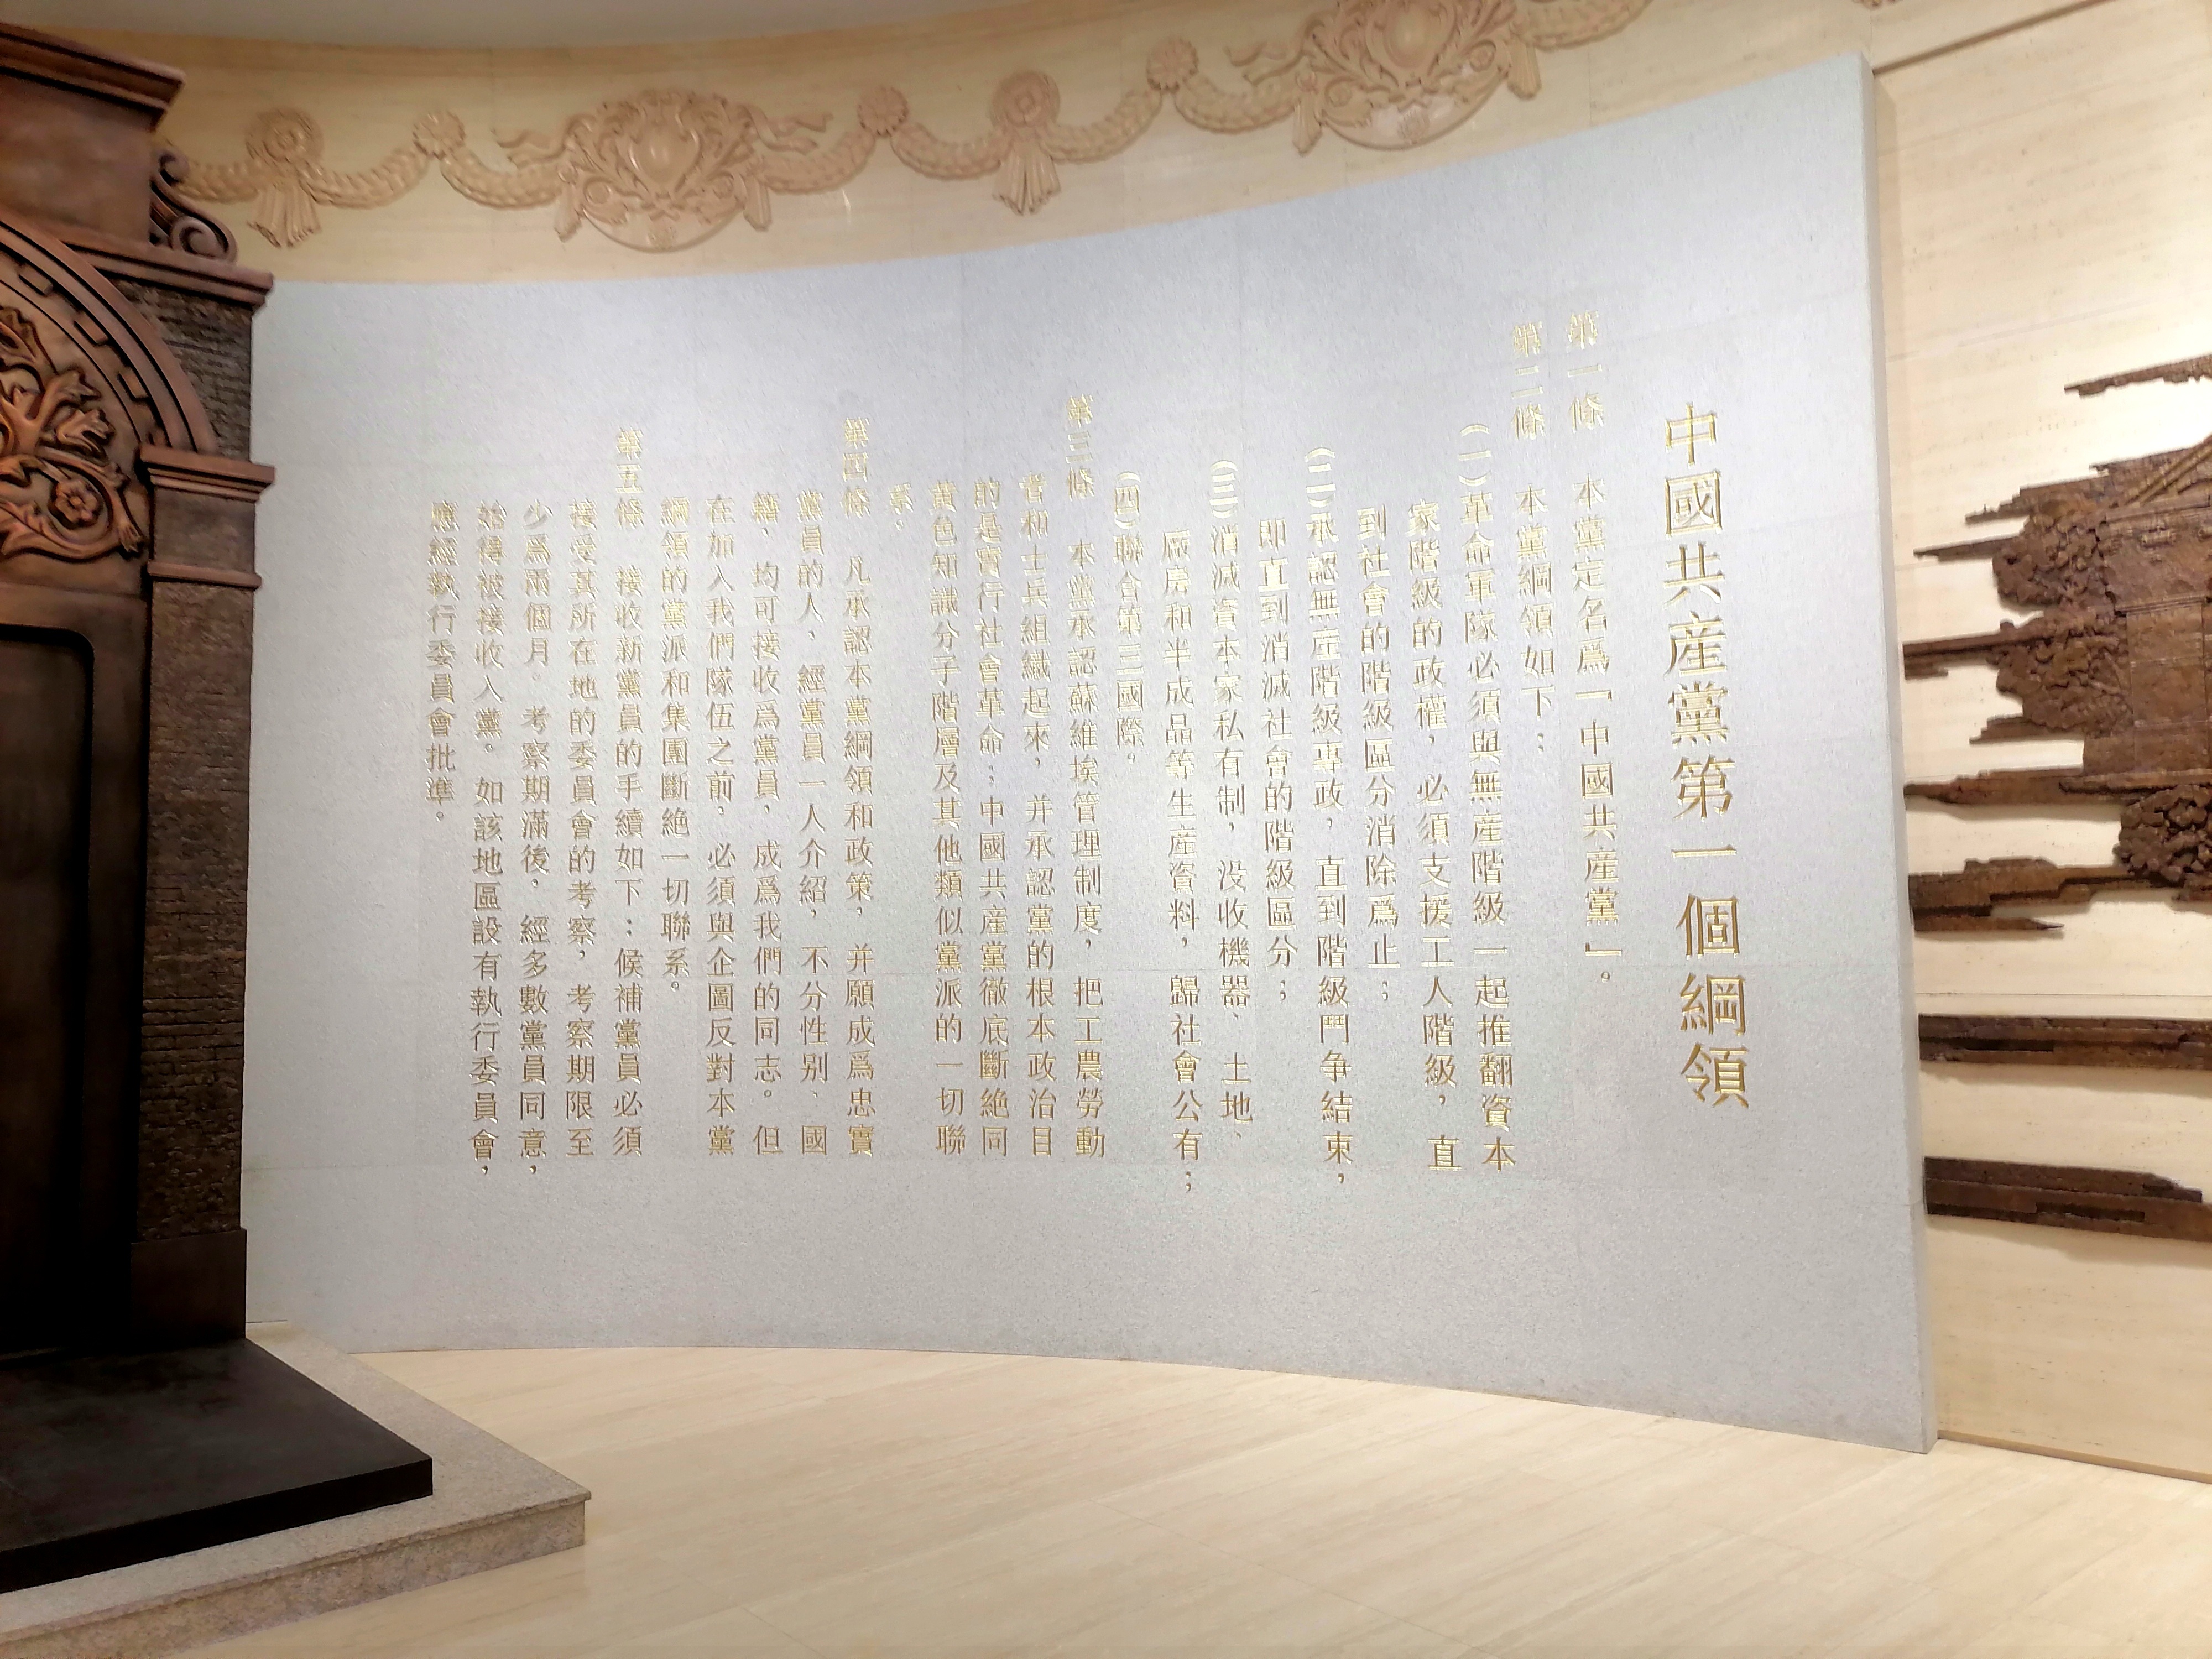 中國共産黨第一個綱領
第一條　本黨定名爲「中國共産黨」。
第二條　本黨綱領如下：
（一）革命軍隊必須與無産階級一起推翻資本
家階級的政權，必須支援工人階級，直
到社會的階級區分消除爲止；
（二）承認無産階級專政，直到階級鬥争結束，
即直到消滅社會的階級區分；
（三）消滅資本家私有制，没收機器、土地、
厰房和半成品等生産資料，歸社會公有；
（四）聯合第三國際。
第三條　本黨承認蘇維埃管理制度，把工農勞動
者和士兵組織起來，并承認黨的根本政治目
的是實行社會革命；中國共産黨徹底斷絶同
黄色知識分子階層及其他類似黨派的一切聯
系。
第四條　凡承認本黨綱領和政策，并願成爲忠實
黨員的人，經黨員一人介紹，不分性别、國
籍，均可接收爲黨員，成爲我們的同志。但
在加入我們隊伍之前，必須與企圖反對本黨
綱領的黨派和集團斷絶一切聯系。
第五條　接收新黨員的手續如下：候補黨員必須
接受其所在地的委員會的考察，考察期限至
少爲兩個月。考察期滿後，經多數黨員同意，
始得被接收入黨。如該地區設有執行委員會，
應經執行委員會批準。